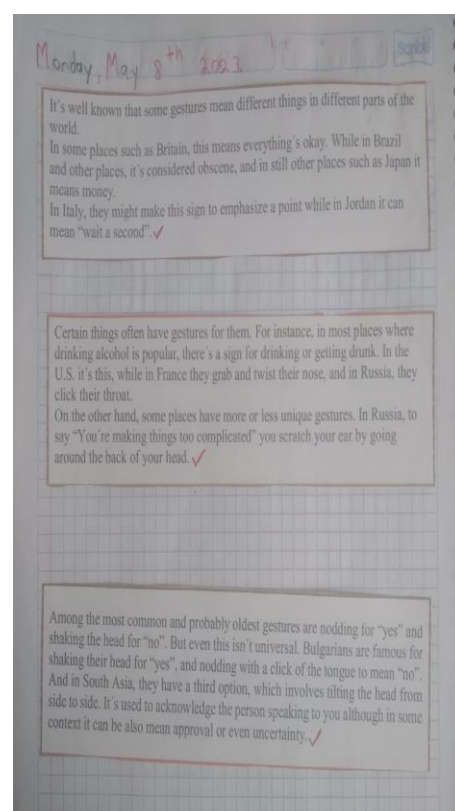 Scribe
Monday, May 8th 2023.
It´s well known that some gestures mean different things in different parts of the
world.
In some places such as Britain, this means everything´s okay. While in Brazil
and other places, it´s considered obscene, and in still other places such as Japan it
means money.
In Italy, they might make this sign to emphasize a point while in Jordan it can
mean “wait a second”.✓
Certain things often have gestures for them. For instance, in most places where
drinking alcohol is popular, there´s a sign for drinking or getting drunk. In the
U.S. it´s this, while in France they grab and twist their nose, and in Russia, they
click their throat.
On the other hand, some places have more or less unique gestures. In Russia, to
say “You´re making things too complicated” you scratch your ear by going
around the back of your head.✓
Among the most common and probably oldest gestures are nodding for “yes” and
shaking the head for “no”. But even this isn´t universal. Bulgarians are famous for
shaking their head for “yes”, and nodding with a click of the tongue to mean “no”.
And in South Asia, they have a third option, which involves tilting the head from
side to side. It´s used to acknowledge the person speaking to you although in some
context it can be also mean approval or even uncertainty.✓